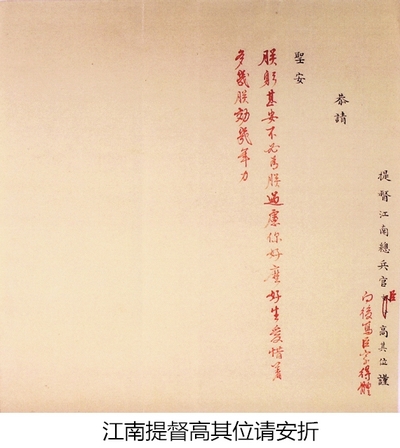 提督江南總兵官臣高其位謹
向後寫臣字得體
恭請
聖安
朕躬甚安不必為朕過慮你好麽好生愛惜著
多與朕効幾年力
江南提督高其位请安折